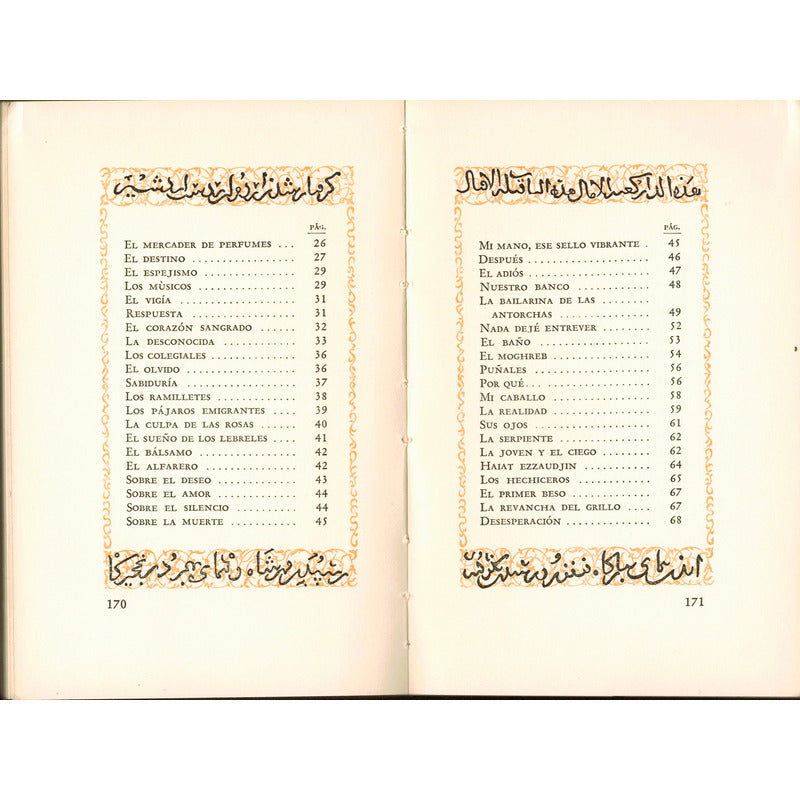 PÁG.
EL MERCADER DE PERFUMES ... 26
EL DESTINO .................. 27
EL ESPEJISMO ................ 29
LOS MÙSICOS ................. 29
EL VIGÍA .................... 31
RESPUESTA ................... 31
EL CORAZÓN SANGRADO ...... 32
LA DESCONOCIDA .............. 33
LOS COLEGIALES .............. 36
EL OLVIDO ................... 36
SABIDURÍA ................... 37
LOS RAMILLETES .............. 38
LOS PÁJAROS EMIGRANTES .... 39
LA CULPA DE LAS ROSAS ...... 40
EL SUEÑO DE LOS LEBRELES ... 41
EL BÁLSAMO .................. 42
EL ALFARERO ................. 42
SOBRE EL DESEO .............. 43
SOBRE EL AMOR ............... 44
SOBRE EL SILENCIO ........... 44
SOBRE LA MUERTE ............. 45
170
PÁG.
MI MANO, ESE SELLO VIBRANTE . 45
DESPUÉS ..................... 46
EL ADIÓS .................... 47
NUESTRO BANCO ............... 48
LA BAILARINA DE LAS ........
ANTORCHAS ................... 49
NADA DEJÉ ENTREVER ........ 52
EL BAÑO ..................... 53
EL MOGHREB .................. 54
PUÑALES ..................... 56
POR QUÉ... .................. 56
MI CABALLO .................. 58
LA REALIDAD ................. 59
SUS OJOS .................... 61
LA SERPIENTE ................ 62
LA JOVEN Y EL CIEGO ........ 62
HAIAT EZZAUDJIN ............. 64
LOS HECHICEROS .............. 65
EL PRIMER BESO .............. 67
LA REVANCHA DEL GRILLO .... 67
DESESPERACIÓN ............... 68
171